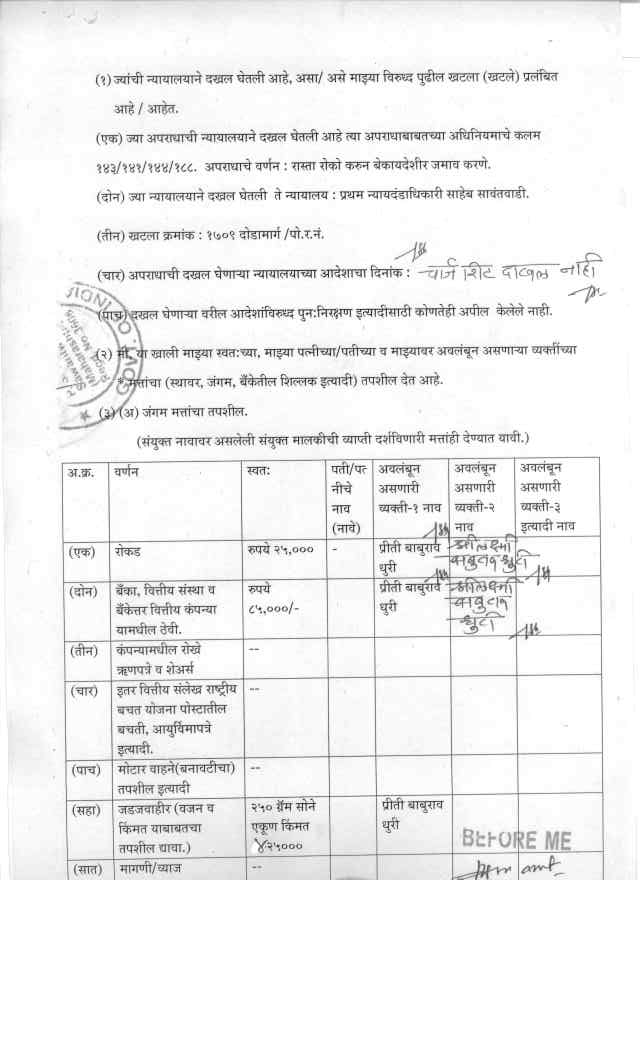 (१) ज्यांची न्यायालयाने दखल घेतली आहे, असा/ असे माझ्या विरुध्द पुढील खटला (खटले) प्रलंबित
आहे / आहेत.
(एक) ज्या अपराधाची न्यायालयाने दखल घेतली आहे त्या अपराधाबाबतच्या अधिनियमाचे कलम
१४३/१४१/१४४/१८८. अपराधाचे वर्णन : रास्ता रोको करुन बेकायदेशीर जमाव करणे.
(दोन) ज्या न्यायालयाने दखल घेतली ते न्यायालय : प्रथम न्यायदंडाधिकारी साहेब सावंतवाडी.
(तीन) खटला क्रमांक : १७०९ दोडामार्ग /पो.र.नं.
(चार) अपराधाची दखल घेणाऱ्या न्यायालयाच्या आदेशाचा दिनांक : चार्ज शिट दाखल नाही
(पाच) दखल घेणाऱ्या वरील आदेशांविरुध्द पुन:निरक्षण इत्यादीसाठी कोणतेही अपील केलेले नाही.
(२) मी, या खाली माझ्या स्वत:च्या, माझ्या पत्नीच्या/पतीच्या व माझ्यावर अवलंबून असणाऱ्या व्यक्तींच्या
मत्तांचा (स्थावर, जंगम, बँकेतील शिल्लक इत्यादी) तपशील देत आहे.
(३) (अ) जंगम मत्तांचा तपशील.
(संयुक्त नावावर असलेली संयुक्त मालकीची व्याप्ती दर्शविणारी मत्तांही देण्यात यावी.)
अ.क्र. वर्णन स्वत: पती/पत्नीचे नाव (नावे) अवलंबून असणारी व्यक्ती-१ नाव अवलंबून असणारी व्यक्ती-२ नाव अवलंबून असणारी व्यक्ती-३ इत्यादी नाव
(एक) रोकड रुपये २५,००० - प्रीती बाबुराव धुरी
(दोन) बँका, वित्तीय संस्था व बँकेतर वित्तीय कंपन्या यामधील ठेवी. रुपये ८५,०००/- प्रीती बाबुराव धुरी
(तीन) कंपन्यामधील रोखे ऋणपत्रे व शेअर्स --
(चार) इतर वित्तीय संलेख राष्ट्रीय बचत योजना पोस्टातील बचती, आयुर्विमापत्रे इत्यादी. --
(पाच) मोटार वाहने(बनावटीचा) तपशील इत्यादी --
(सहा) जडजवाहीर (वजन व किंमत याबाबतचा तपशील द्यावा.) २५० ग्रॅम सोने एकूण किंमत ४२५००० प्रीती बाबुराव धुरी
BEFORE ME
(सात) मागणी/व्याज --